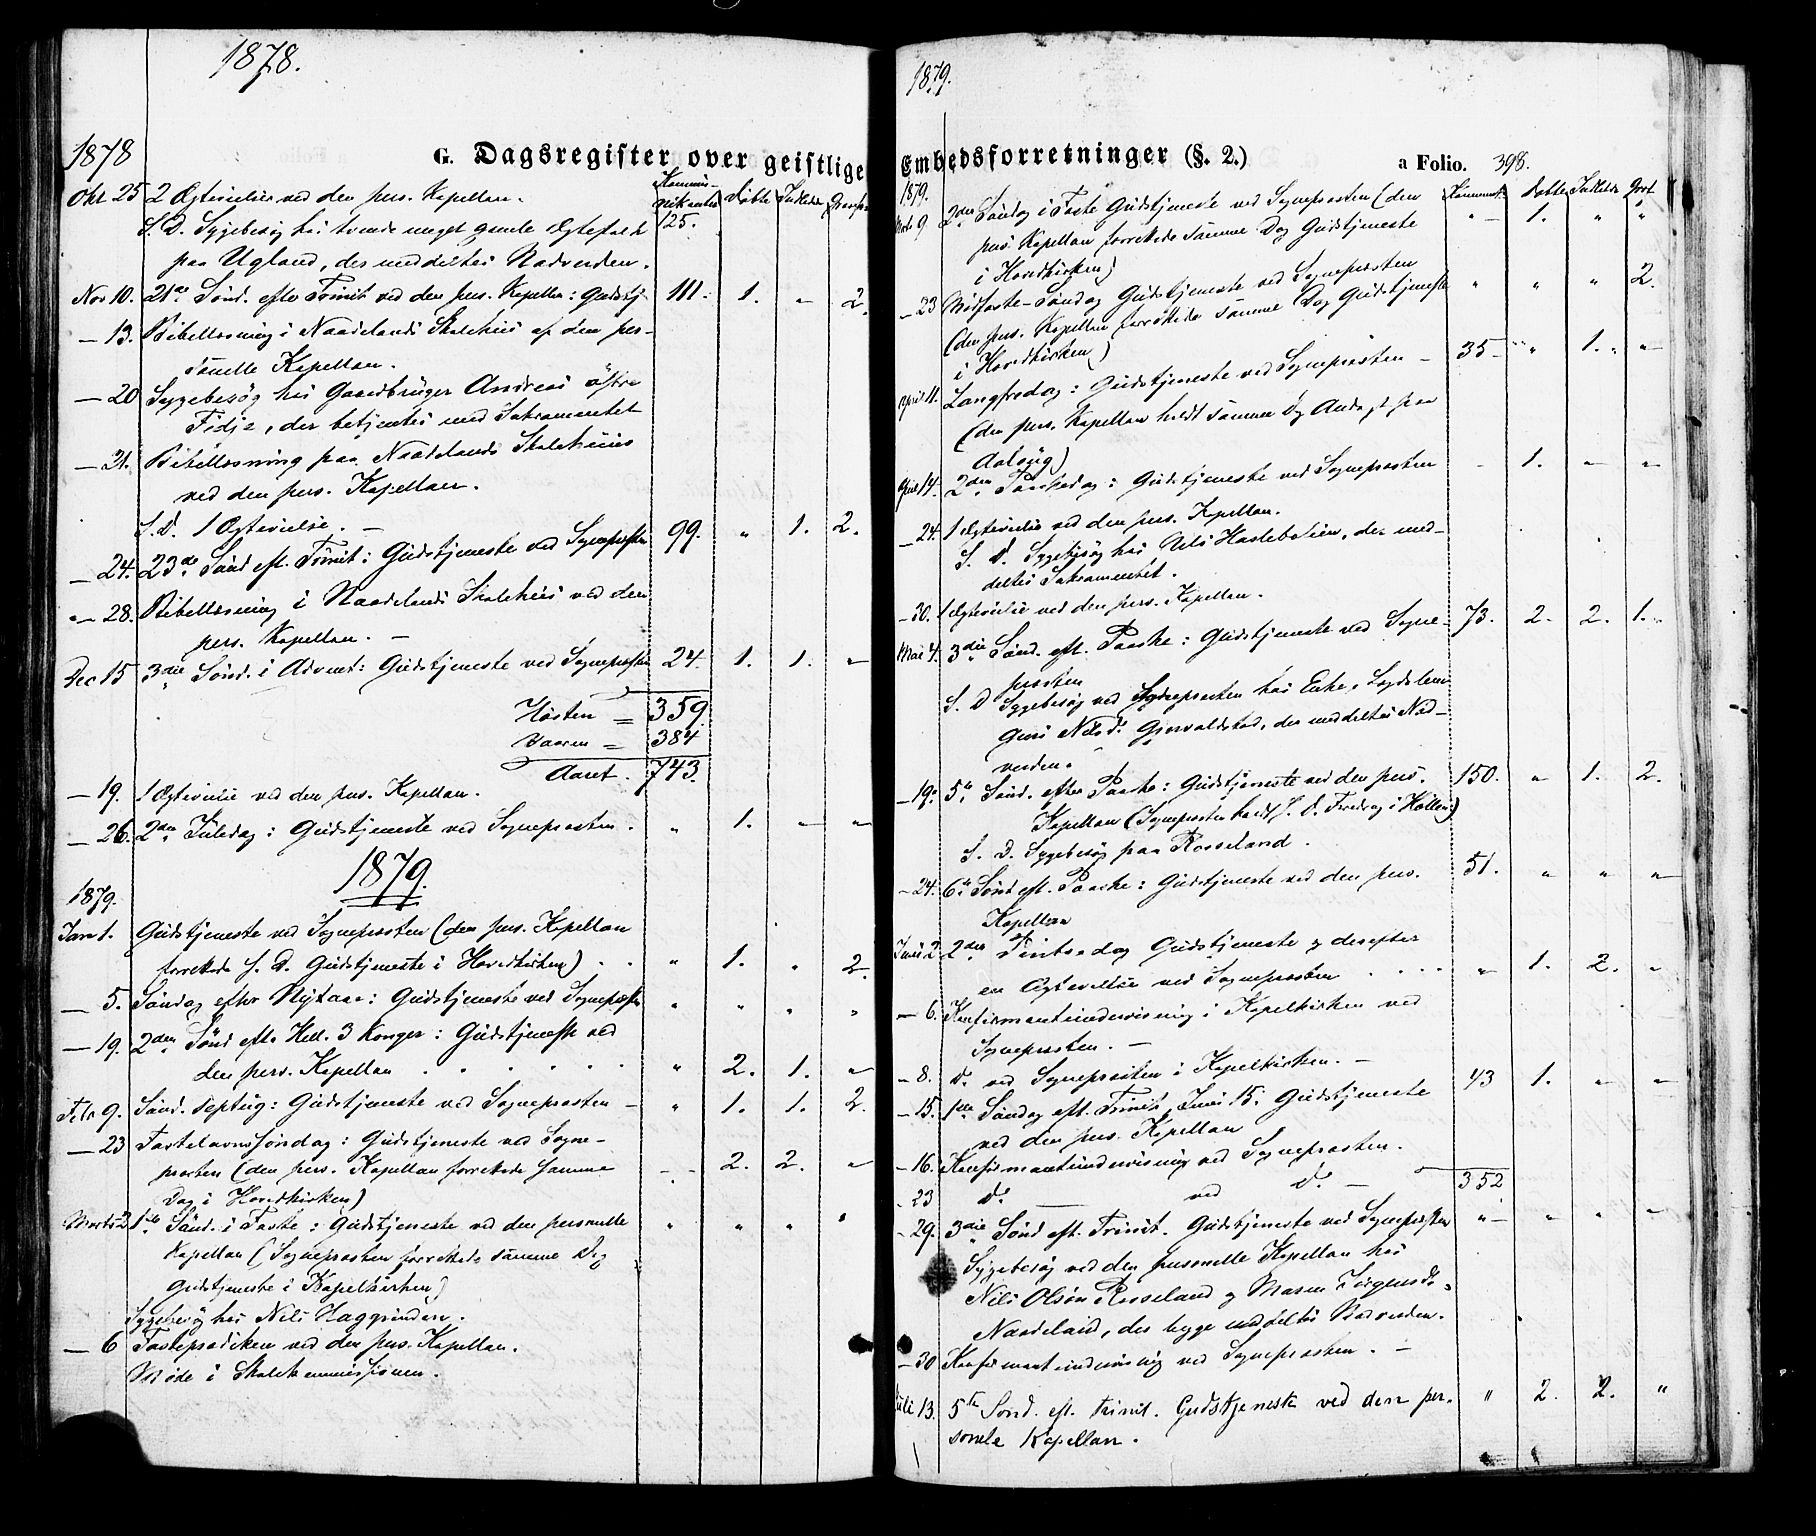 1878.
1878
G. Dagsregister over geistlige
Kommu-
nikanter Døbte Indledte
Okt 25 2 Ægtevielser ved den pers. Kapellan. 125.
S. D. Sygebesøg hos tvende meget gamle Ægtefolk
paa Ugland, der meddeltes Nadverden.
Nov 10. 21de Sønd. efter Trinit ved den pers. Kapellan: Gudstj. 111. 1. „ 2.
— 13. Bibellæsning i Naadelands Skolehus af den per-
sonelle Kapellan.
— 20 Sygebesøg hos Gaardbruger Andreas østre
Fidje, der betjentes med Sakramentet
— 21. Bibellæsning paa Naadelands Skolehuus
ved den pers. Kapellan.
S. D. 1 Ægtevielse. —
— 24. 23de Sønd eft. Trinit: Gudstjeneste ved Sognepræsten 99. „ 1. 2.
— 28. Bibellæsning i Naadelands Skolehus ved den
pers. Kapellan. —
Dec 15 3die Sønd. i Advent: Gudstjeneste ved Sognepræsten 24. 1. 1. „
Høsten = 359.
Vaaren = 384
Aaret. 743.
— 19. 1 Ægtevielse ved den pers. Kapellan.
— 26. 2den Juledag: Gudstjeneste ved Sognepræsten. „ 1. „ „
1879.
1879.
Jan 1. Gudstjeneste ved Sognepræsten (den pers. Kapellan
forrettede s. D. Gudstjeneste i Hovedkirken) . . „ 1. „ 2.
— 5. Søndag efter Nytaar: Gudstjeneste ved Sognepræsten „ „ „ „
— 19. 2den Sønd efter Hell. 3 Konger: Gudstjeneste ved
den pers. Kapellan . . . . . . „ 2. 1. „
Feb 9. Sønd. Septug: Gudstjeneste ved Sognepræsten — „ 1. 1. 2.
— 23 Fastelavnssøndag: Gudstjeneste ved Sogne-
præsten (den pers. Kapellan forrettede samme — 2. 2. „
Dag i Hovedkirken)
Marts 2. 1ste Sønd. i Faste: Gudstjeneste ved den personelle „ „ „ „
Kapellan (Sognepræsten forrettede samme Dag
Gudstjeneste i Kapelkirken)
Sygebesøg hos Nils
— 6 Fasteprædiken ved den pers. Kapellan.
Møde i Skolekommissionen.
1879.
Embedsforretninger (§. 2.)
a Folio. 398.
1879.
Kommunik. Døbte Indledte
Marts 9 2den Søndag i Faste Gudstjeneste ved Sognepræsten (den „ 1. „ „
pers. Kapellan forrettede samme Dag Gudstjeneste
i Hovedkirken)
— 23 Midfaste-Søndag Gudstjeneste ved Sognepræsten „ „ „ 2.
(den pers. Kapellan forrettede samme Dag Gudstjeneste
i Hovedkirken)
April 11. Langfredag: Gudstjeneste ved Sognepræsten — 35 „ 1. „
(den pers. Kapellan holdt samme Dag Andagt paa
April 14. 2den Paaskedag: Gudstjeneste ved Sognepræsten — 1. „ „
— 24. 1 Ægtevielse ved den pers. Kapellan.
S. D. Sygebesøg hos Nils der med-
deltes Sakramentet.
— 30. 1 Ægtevielse ved den pers. Kapellan.
Mai 4. 3die Sønd. eft. Paaske: Gudstjeneste ved Sogne- 73. 2. 2. 1.
præsten
S. D Sygebesøg ved Sognepræsten hos Enke, Lægdslem
Guri Nilsd. der meddeltes Nad-
verden.
— 19. 5te Sønd. efter Paaske: Gudstjeneste ved den pers. 150. „ 1. 2.
Kapellan (Sognepræsten holdt s. D. Foredrag i Hølleu)
S. D. Sygebesøg paa Rosseland.
— 24. 6te Sønd eft. Paaske: Gudstjeneste ved den pers. 51. „ „ „
Kapellan
Juni 2. 2den Pintsedag Gudstjeneste og derefter
en Ægtevielse ved Sognepræsten . . . . „ 1. 2. „
— 6. Konfirmantundervisning i Kapelkirken ved
Sognepræsten. —
— 8. Do. ved Sognepræsten i Kapelkirken. —
— 15. 1ste Søndag eft. Trinit. Juni 15. Gudstjeneste 43 1. „ „
ved den pers. Kapellan
— 16. Konfirmantundervisning ved Sognepræsten.
— 23 Do. — ved Do. — 352
— 29. 3die Sønd eft. Trinit. Gudstjeneste ved Sognepræsten „ „ „ „
Sygebesøg ved den personelle Kapellan hos
Nils Olsøn Rosseland og Maren Jørgensd.
Naadeland, der begge meddeltes Nadverden.
— 30 Konfirmantundervisning ved Sognepræsten. —
Juli 13. 5te Sønd. eft. Trinit. Gudstjeneste ved den per- „ 2. 2. „
sonele Kapellan.